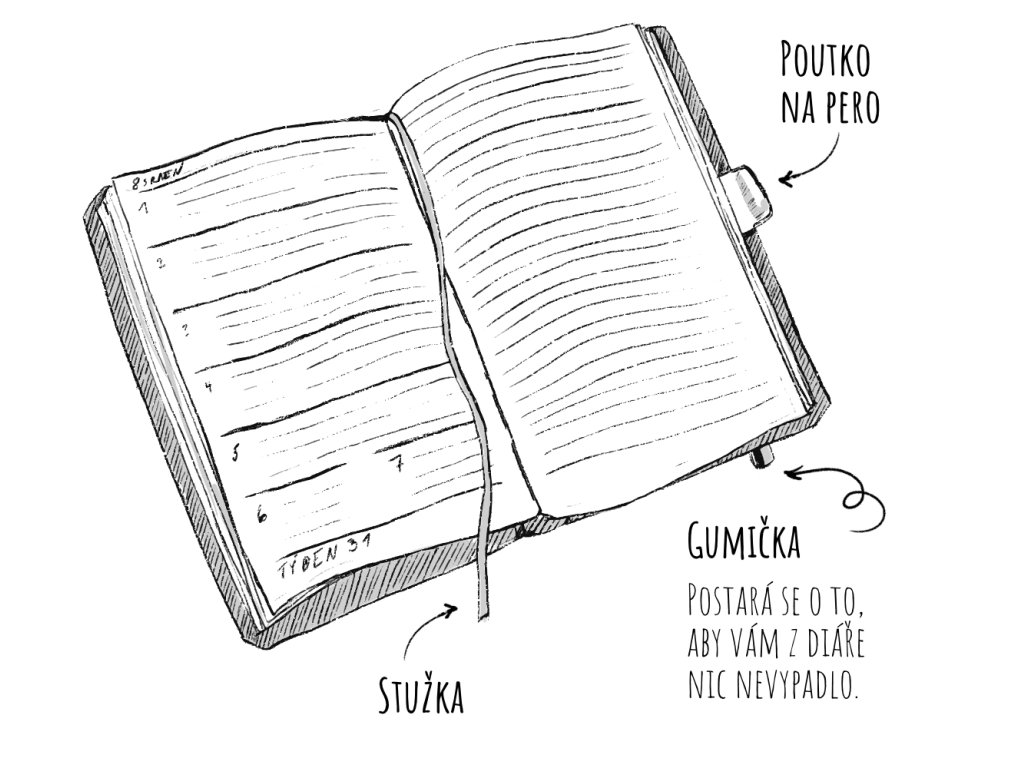 POUTKO
NA PERO
8 SRPEN
1
2
3
4
5
6
7
TÝDEN 31
GUMIČKA
POSTARÁ SE O TO,
ABY VÁM Z DIÁŘE
NIC NEVYPADLO.
STUŽKA